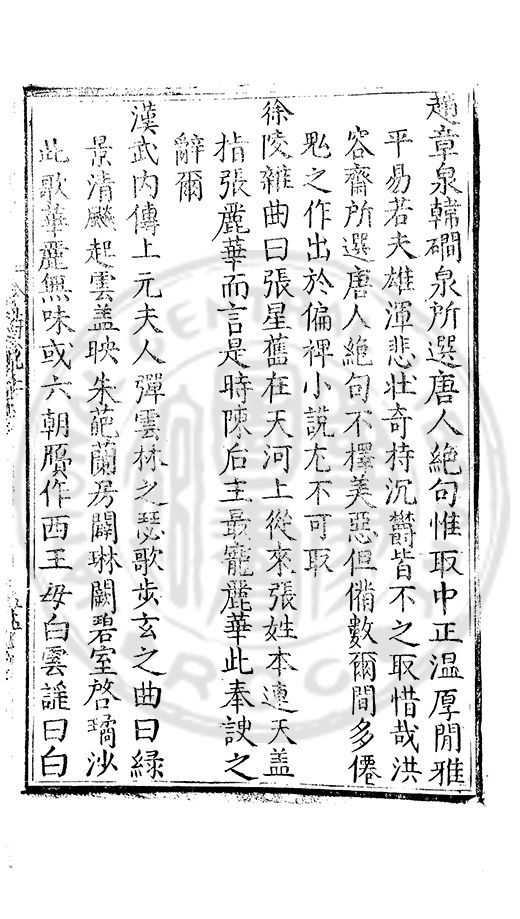 趙章泉韓磵泉所選唐人絶句惟取中正温厚閒雅
平易若夫雄渾悲壯奇特沉欝皆不之取惜哉洪
容齋所選唐人絶句不擇美惡但備數爾間多僊
鬼之作出於偏裨小說尤不可取
徐陵雜曲曰張星舊在天河上從來張姓本連天盖
指張麗華而言是時陳后主最寵麗華此奉諛之
辭爾
漢武内傳上元夫人彈雲林之瑟歌步玄之曲曰綠
景清飈起雲盖映朱葩蘭房闢琳闕碧室啓瓊沙
此歌華麗無味或六朝贋作西王母白雲謡曰白